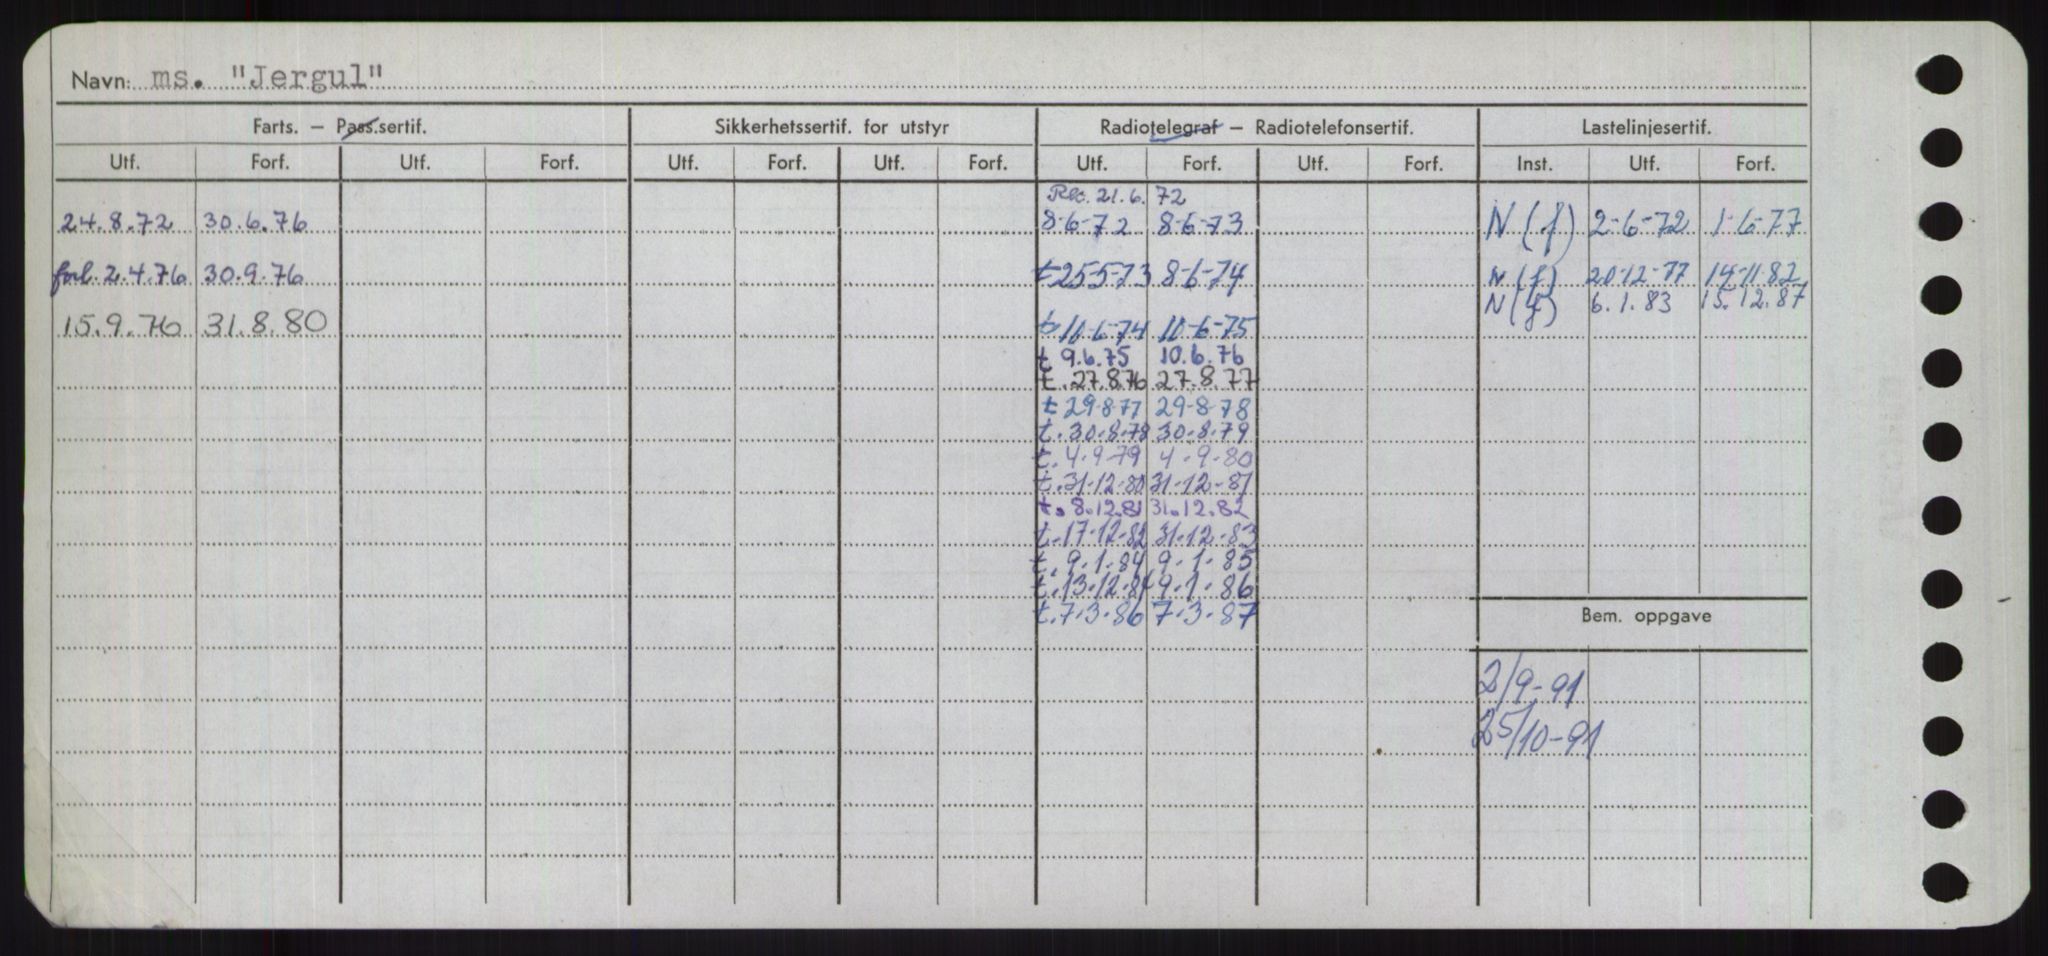 Navn: ms. "Jergul"
Farts. – Pass.sertif. Sikkerhetssertif. for utstyr Radiotelegraf – Radiotelefonsertif. Lastelinjesertif.
Utf. Forf. Utf. Forf. Utf. Forf. Utf. Forf. Utf. Forf. Utf. Forf. Inst. Utf. Forf.
21.6.72
24.8.72 30.6.76 8-6-72 8-6-73 N (f) 2-6-72 1-6-77
forl. 2.4.76 30.9.76 t 25-5-73 8-6-74 N (f) 20-12-77 14-11-82
N (f) 6.1.83 15.12.87
15.9.76 31.8.80 t 10-6-74 10-6-75
t 9.6.75 10.6.76
t. 27.8.76 27.8.77
t 29-8-77 29-8-78
t. 30-8-78 30-8-79
t. 4-9-79 4-9-80
t. 31-12-80 31-12-81
t. 8.12.81 31.12.82
t. 17-12-82 31-12-83
t. 9-1-84 9-1-85
t. 13-12-84 9-1-86
t. 7-3-86 7-3-87
Bem. oppgave
2/9-91
25/10-91